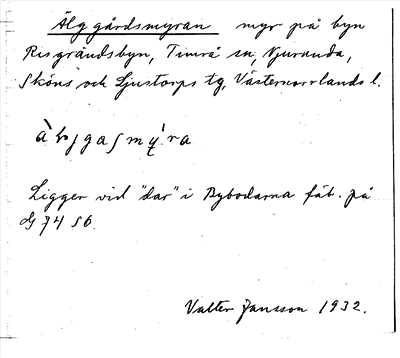 Älggårdsmyran myr på byn
Risgrändsbyn, Timrå sn, Njurunda,
Sköns och Ljustorps tg, Västernorrlands l.
Ligger vid "dar" i Bybodarna fäb. på
74 S6.
Valter Jansson 1932.